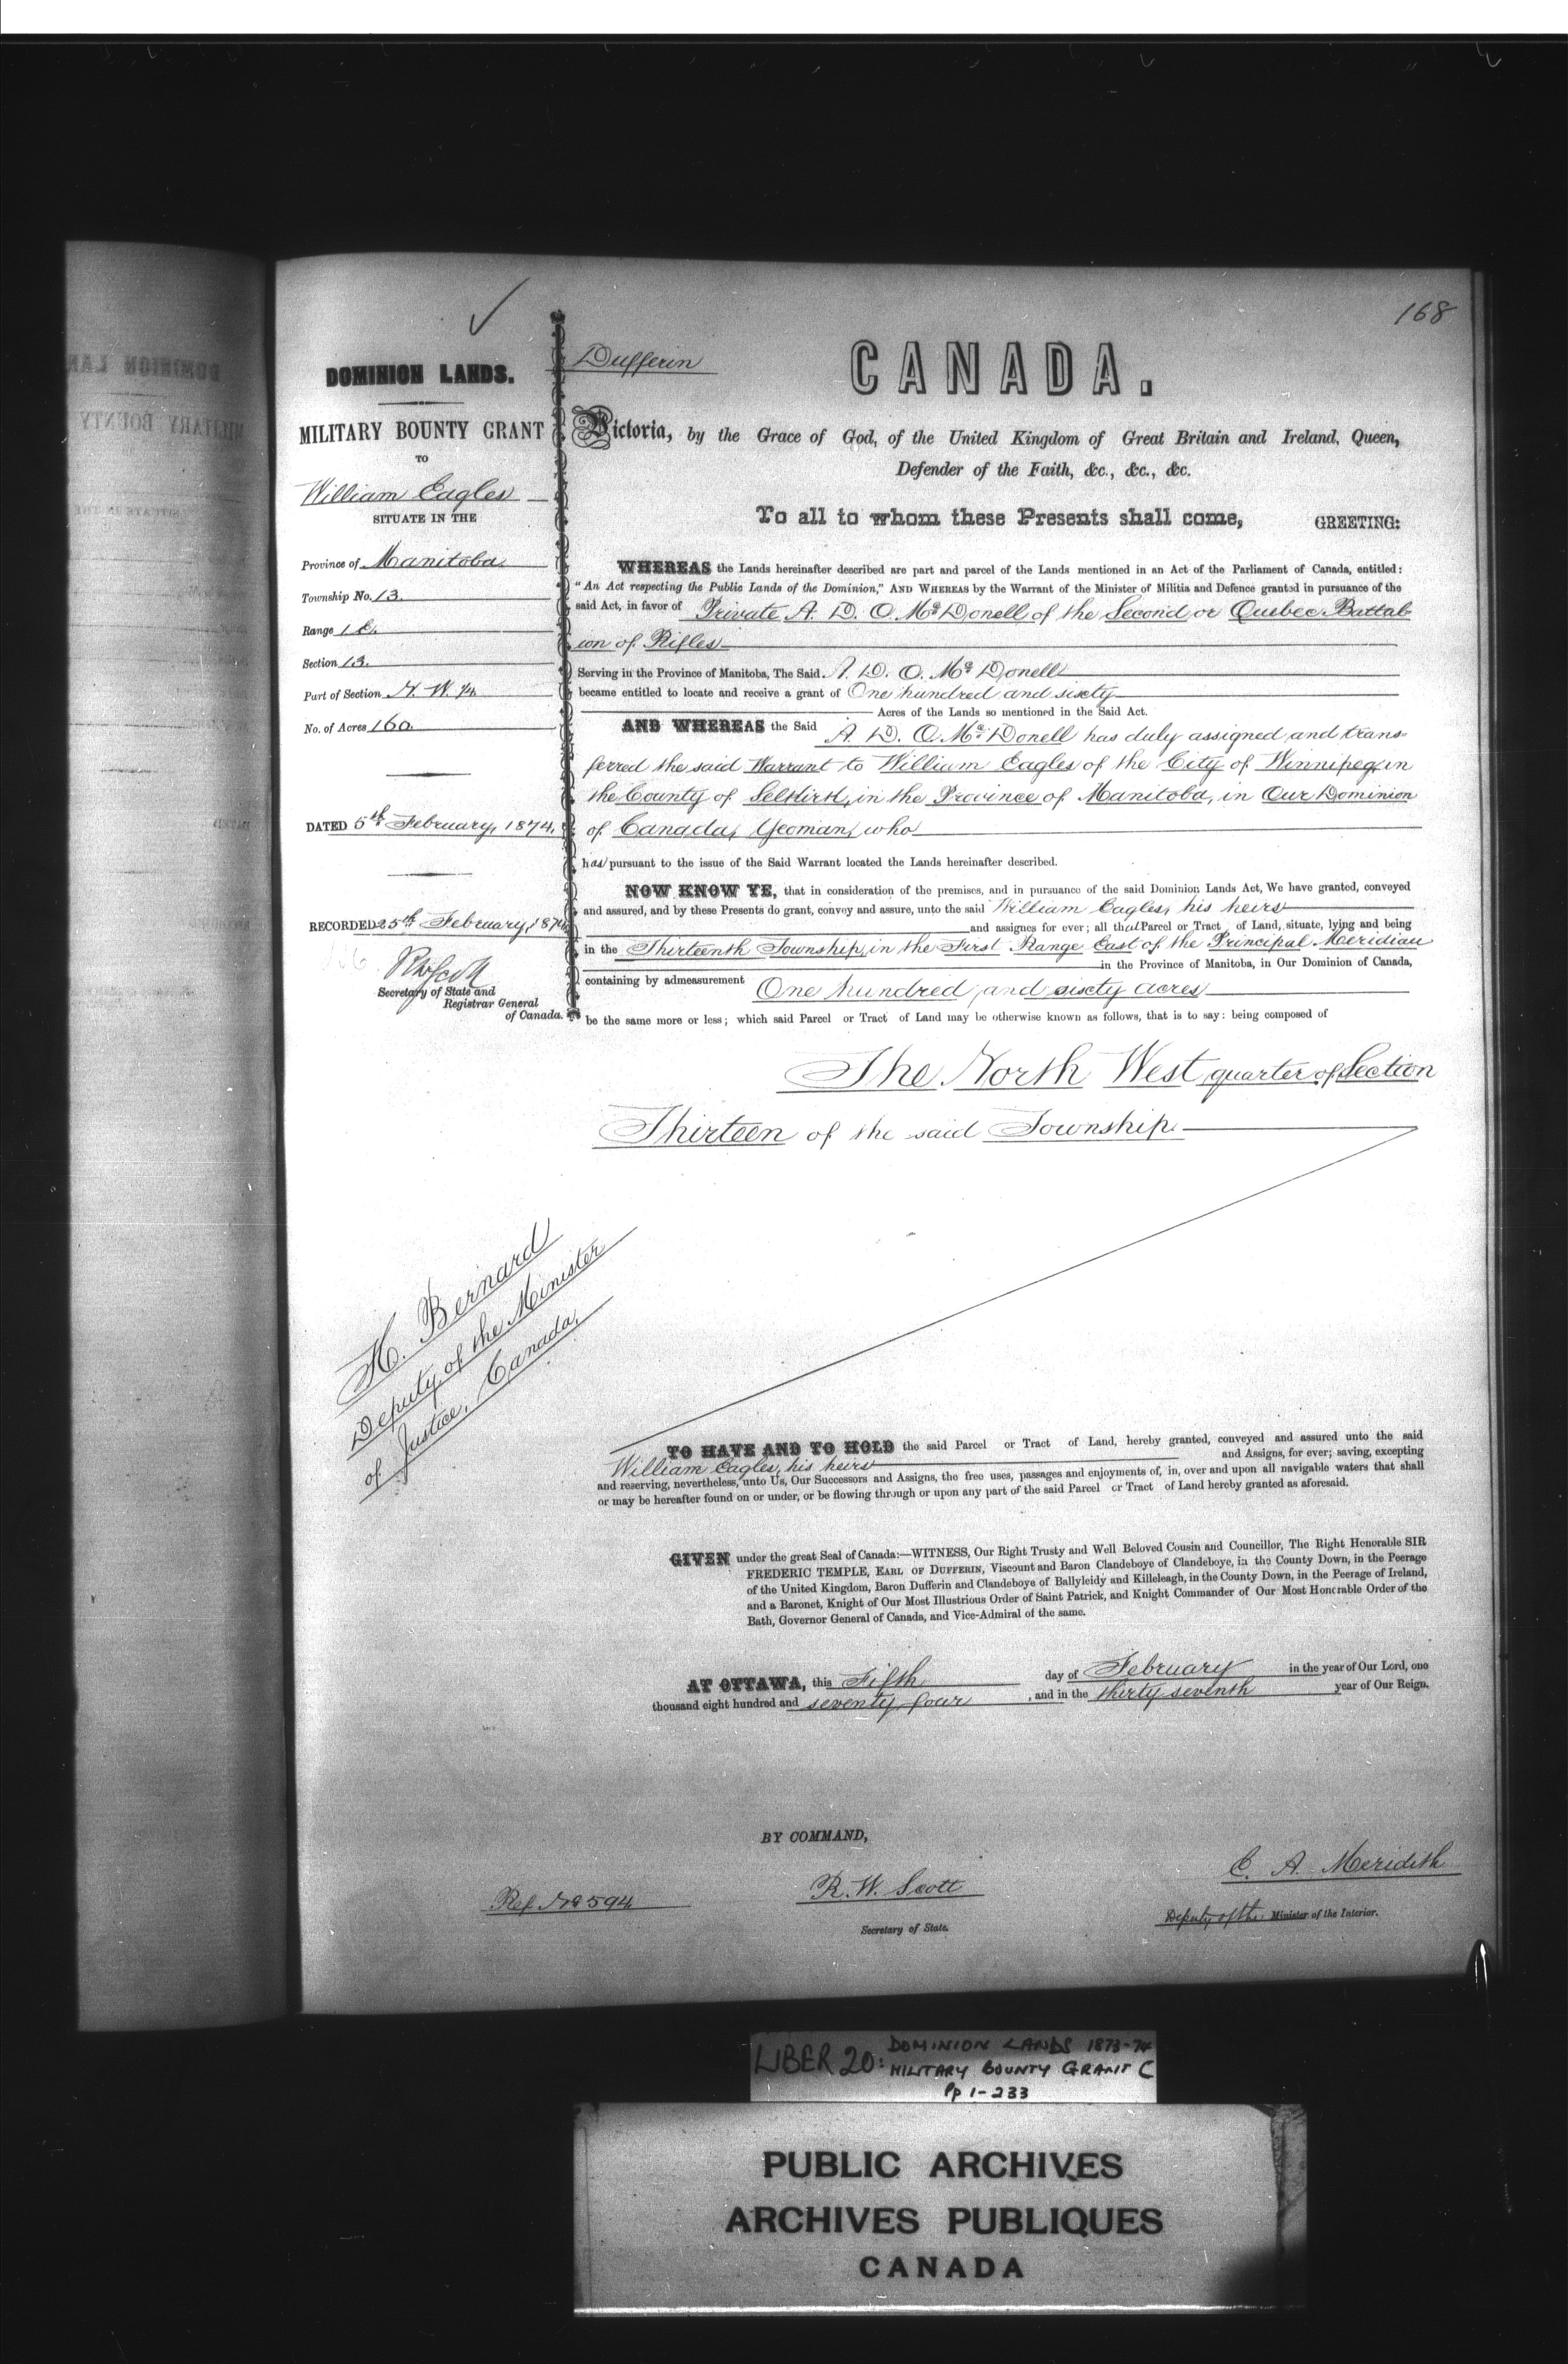 168
DOMINION LANDS.
MILITARY BOUNTY GRANT
TO
William Eagles
SITUATE IN THE
Province of Manitoba
Township No. 13.
Range 1 E.
Section 13.
Part of Section N. W. 1/4
No. of Acres 160.
DATED 5th February, 1874.
RECORDED 25th February, 1874
RWScott
Secretary of State and
Registrar General
of Canada.
Dufferin
CANADA.
Victoria, by the Grace of God, of the United Kingdom of Great Britain and Ireland, Queen,
Defender of the Faith, &c., &c., &c.
To all to whom these Presents shall come, GREETING:
WHEREAS the Lands hereinafter described are part and parcel of the Lands mentioned in an Act of the Parliament of Canada, entitled:
"An Act respecting the Public Lands of the Dominion," AND WHEREAS by the Warrant of the Minister of Militia and Defence granted in pursuance of the
said Act, in favor of Private A. D. O. McDonell of the Second or Quebec Battal
ion of Rifles
Serving in the Province of Manitoba, The Said A. D. O. McDonell
became entitled to locate and receive a grant of One hundred and sixty
Acres of the Lands so mentioned in the Said Act.
AND WHEREAS the Said A. D. O. McDonell has duly assigned and trans-
ferred the said Warrant to William Eagles of the City of Winnipeg, in
the County of Selkirk, in the Province of Manitoba, in Our Dominion
of Canada, Yeoman, who
has pursuant to the issue of the Said Warrant located the Lands hereinafter described.
NOW KNOW YE, that in consideration of the premises, and in pursuance of the said Dominion Lands Act, We have granted, conveyed
and assured, and by these Presents do grant, convey and assure, unto the said William Eagles, his heirs
and assigns for ever; all that Parcel or Tract of Land, situate, lying and being
in the Thirteenth Township, in the First Range East of the Principal Meridian
in the Province of Manitoba, in Our Dominion of Canada,
containing by admeasurement One hundred and sixty acres
be the same more or less; which said Parcel or Tract of Land may be otherwise known as follows, that is to say: being composed of
The North West quarter of Section
Thirteen of the said Township
H. Bernard
Deputy of the Minister
of Justice, Canada,
TO HAVE AND TO HOLD the said Parcel or Tract of Land, hereby granted, conveyed and assured unto the said
William Eagles, his heirs and Assigns, for ever; saving, excepting
and reserving, nevertheless, unto Us, Our Successors and Assigns, the free uses, passages and enjoyments of, in, over and upon all navigable waters that shall
or may be hereafter found on or under, or be flowing through or upon any part of the said Parcel or Tract of Land hereby granted as aforesaid.
GIVEN under the great Seal of Canada:—WITNESS, Our Right Trusty and Well Beloved Cousin and Councillor, The Right Honorable SIR
FREDERIC TEMPLE, EARL OF DUFFERIN, Viscount and Baron Clandeboye of Clandeboye, in the County Down, in the Peerage
of the United Kingdom, Baron Dufferin and Clandeboye of Ballyleidy and Killeleagh, in the County Down, in the Peerage of Ireland,
and a Baronet, Knight of Our Most Illustrious Order of Saint Patrick, and Knight Commander of Our Most Honorable Order of the
Bath, Governor General of Canada, and Vice-Admiral of the same.
AT OTTAWA, this Fifth day of February in the year of Our Lord, one
thousand eight hundred and seventy four, and in the thirty seventh year of Our Reign.
BY COMMAND,
Ref No 594
R. W. Scott
Secretary of State.
E. A. Meridith
Deputy of the Minister of the Interior.
LIBER 20: DOMINION LANDS 1873-74
MILITARY BOUNTY GRANT C
Pp 1-233
PUBLIC ARCHIVES
ARCHIVES PUBLIQUES
CANADA